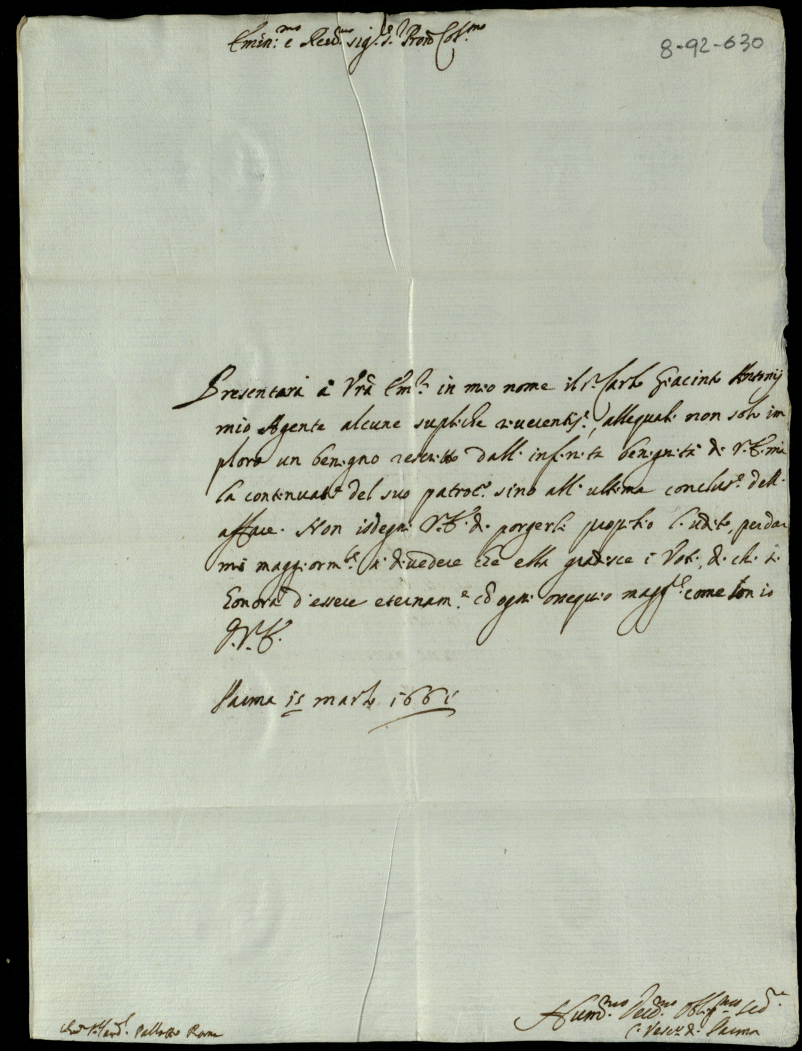 Emin.mo e Reu.mo Sig.re Pron Col.mo
8-92-630
Presentarà à Vrã Em.a in mio nome il S.r Carlo Giacinto Antonij
mio Agente alcune supliche riuerentis.e, allequali non solo im
ploro un benigno rescritto dall' infinita benignità di V.E. mà
la continuat.e del suo patroc.o sino all' ultima conclus.e dell'
affare. Non isdegni V.E. di porgerli propitio l'udito, per dar
mi maggiorm.te à diuedere che ella gradisce i Voti, di chi si
honora d'essere eternam.e cõ ogni ossequio magg.re come son io
D.V.E.
Parma 15 marzo 1661
Hum.mo Deu.mo Obblig.mo Ser.e
Il Vesc.o di Parma
Card.l Pallotto Roma